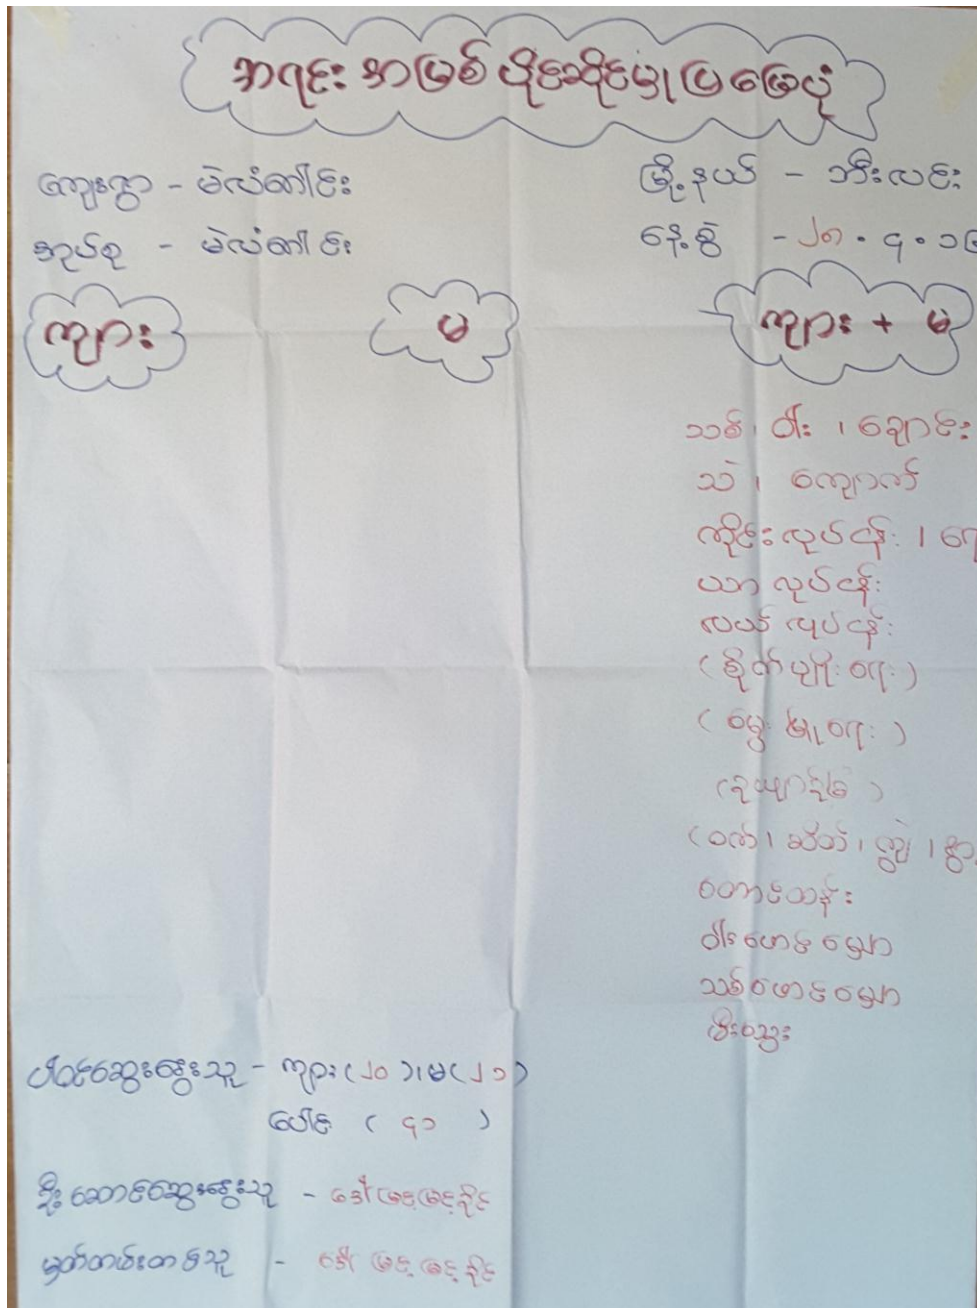 အရင်းအမြစ်ပိုင်ဆိုင်မှုပြမြေပုံ
ကျေးရွာ - မဲလံတောင်း
မြို့နယ် - ဘီးလင်း
အုပ်စု - မဲလံတောင်း
နေ့စွဲ - ၂၈.၄.၁၆
ကျား
မ
ကျား + မ
သစ်၊ ဝါး၊ ချောင်း
သဲ၊ ကျောက်
ကိုင်းလုပ်ငန်း၊
ယာလုပ်ငန်း
လယ်လုပ်ငန်း
(စိုက်ပျိုးရေး)
(မွေးမြူရေး)
(ဥယျာဉ်ခြံ)
(ဝက်၊ ဆိတ်၊ ကျွဲ၊ နွား
တောင်ထန်း
ဝါးဖောင်မျှော
သစ်ဖောင်မျှော
မီးသွေး
ပါဝင်ဆွေးနွေးသူ - ကျား(၂၀)၊ မ(၂၁)
ပေါင်း ( ၄၁ )
ဦးဆောင်ဆွေးနွေးသူ - ဒေါ်မြင့်မြင့်ခိုင်
မှတ်တမ်းတင်သူ - ဒေါ်မြင့်မြင့်ခိုင်